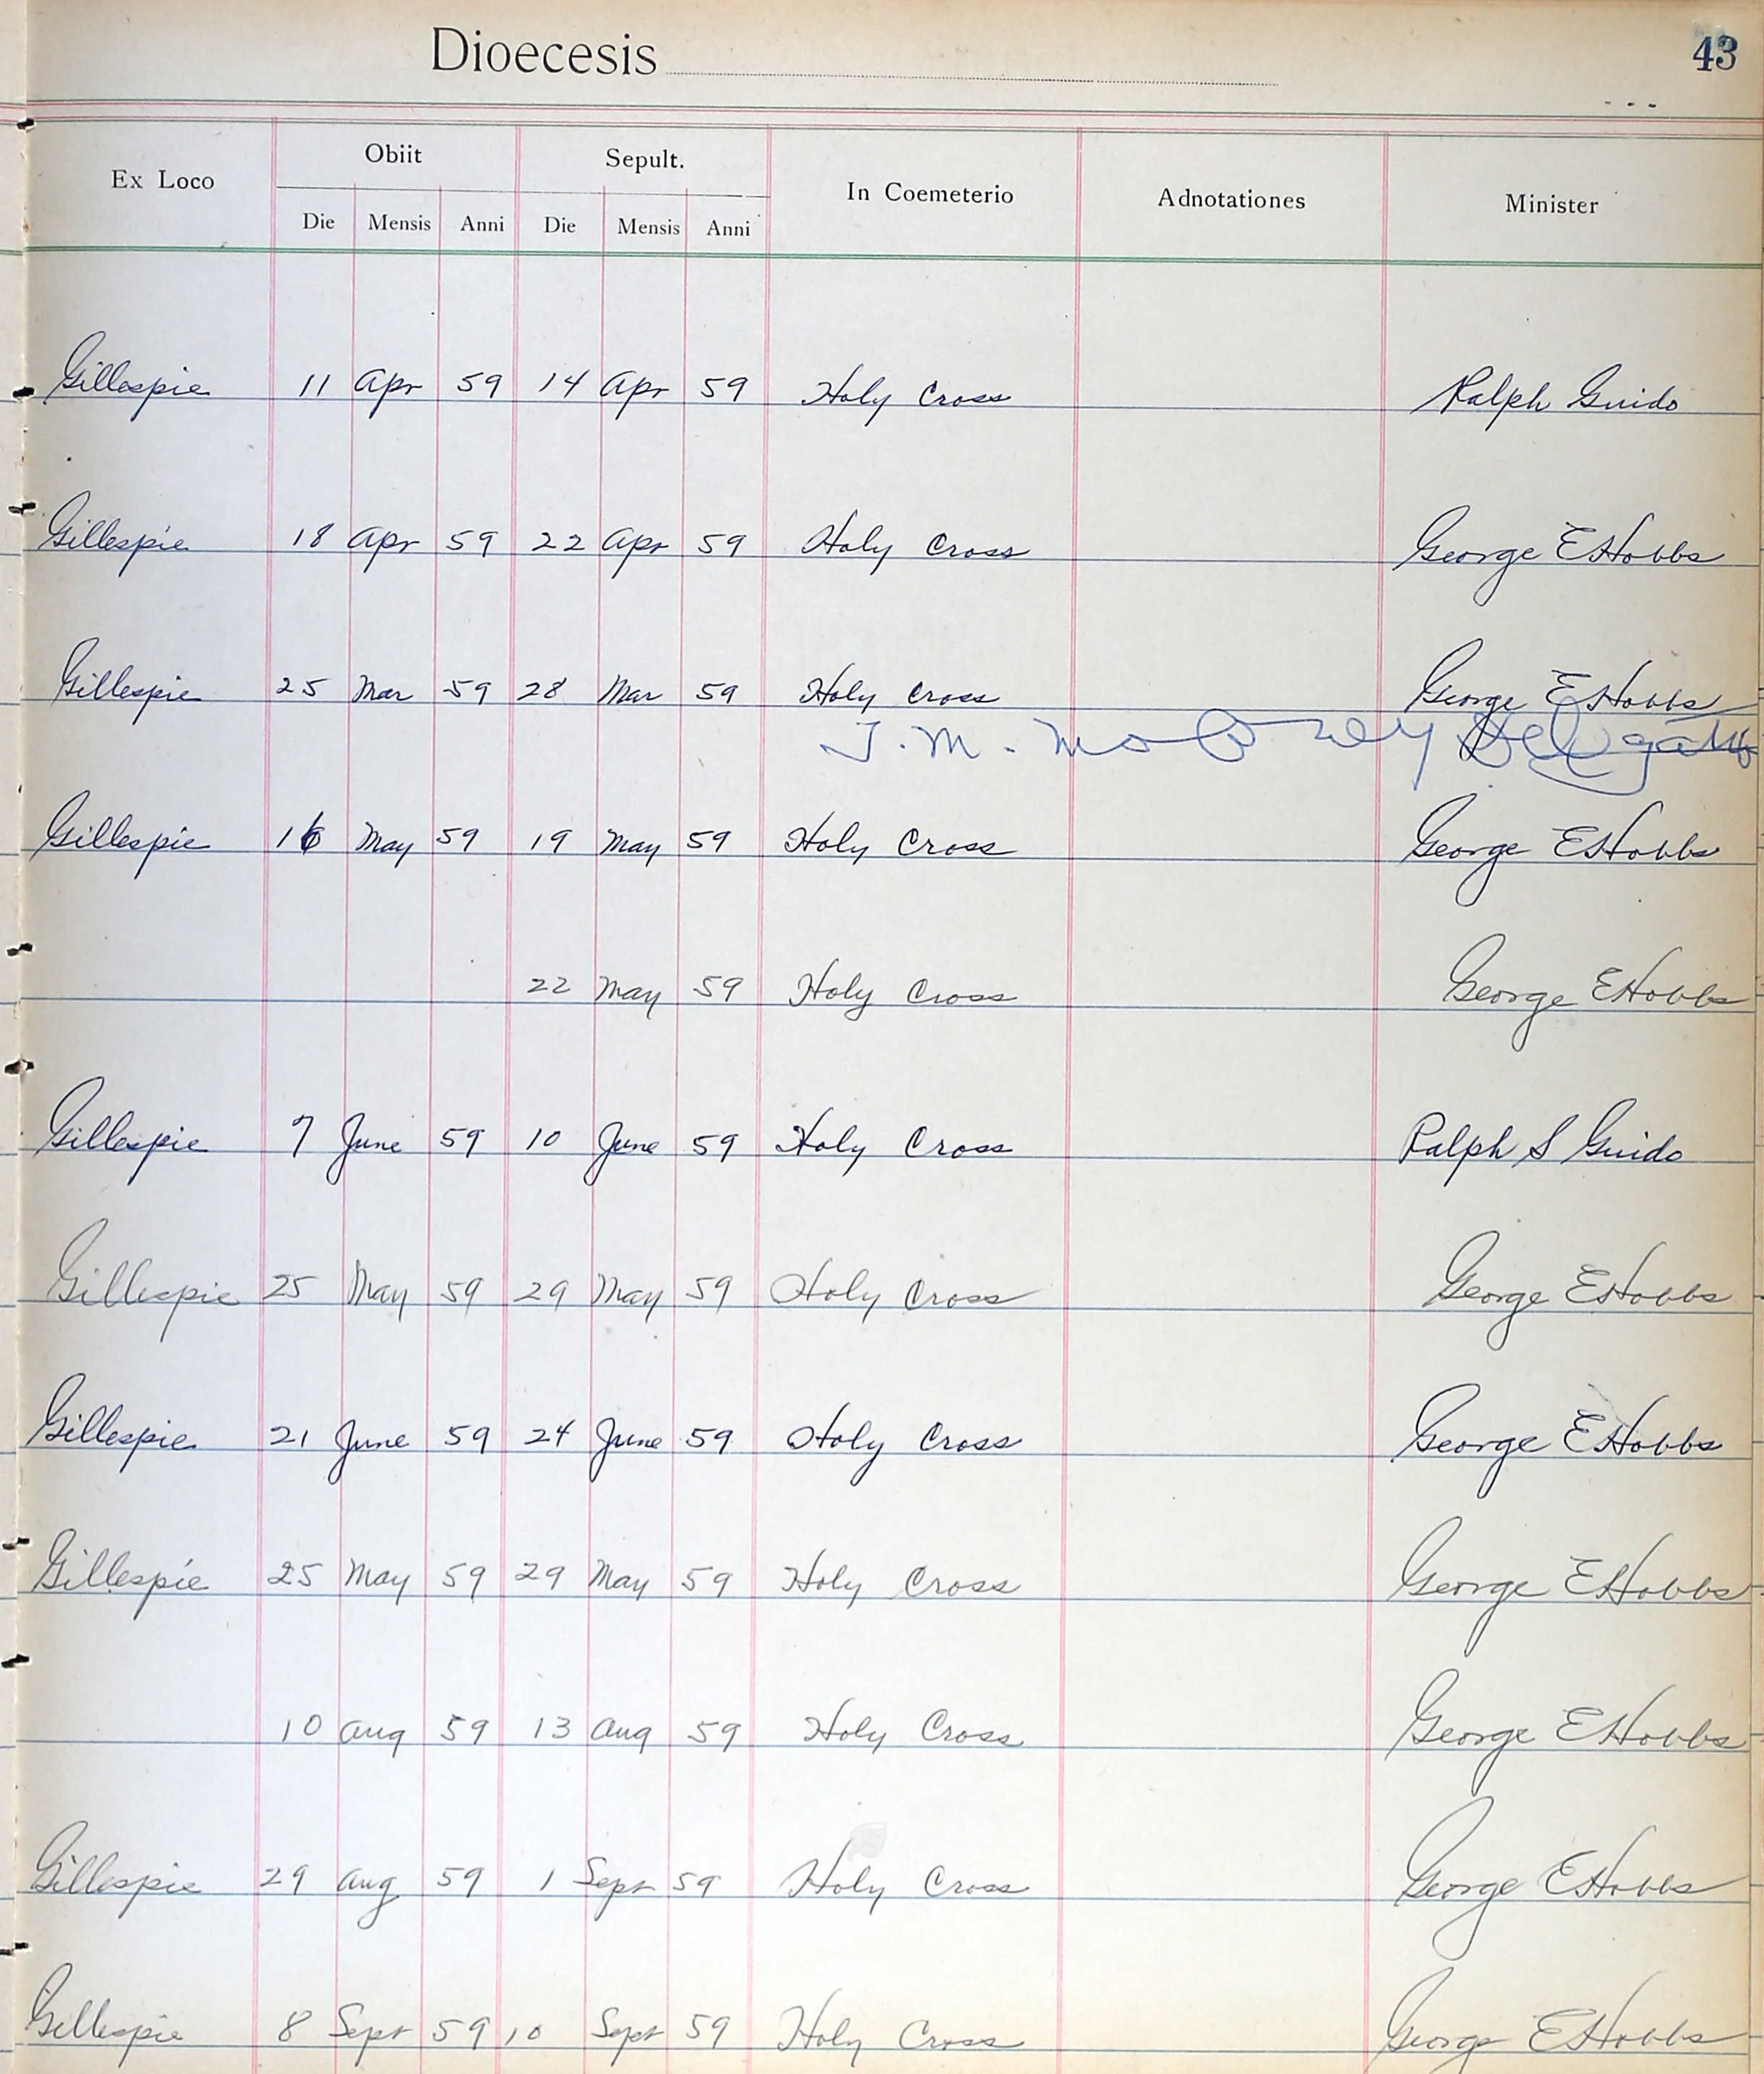 Dioecesis 43
Ex Loco Obiit Sepult. In Coemeterio Adnotationes Minister
Die Mensis Anni Die Mensis Anni
Gillespie 11 Apr 59 14 Apr 59 Holy Cross Ralph Guido
Gillespie 18 Apr 59 22 Apr 59 Holy Cross George E Hobbs
Gillespie 25 Mar 59 28 Mar 59 Holy Cross George E Hobbs
J. M.
Gillespie 16 May 59 19 May 59 Holy Cross George E Hobbs
22 May 59 Holy Cross George E Hobbs
Gillespie 7 June 59 10 June 59 Holy Cross Ralph S Guido
Gillespie 25 May 59 29 May 59 Holy Cross George E Hobbs
Gillespie 21 June 59 24 June 59 Holy Cross George E Hobbs
Gillespie 25 May 59 29 May 59 Holy Cross George E Hobbs
10 Aug 59 13 Aug 59 Holy Cross George E Hobbs
Gillespie 29 Aug 59 1 Sept 59 Holy Cross George E Hobbs
Gillespie 8 Sept 59 10 Sept 59 Holy Cross George E Hobbs